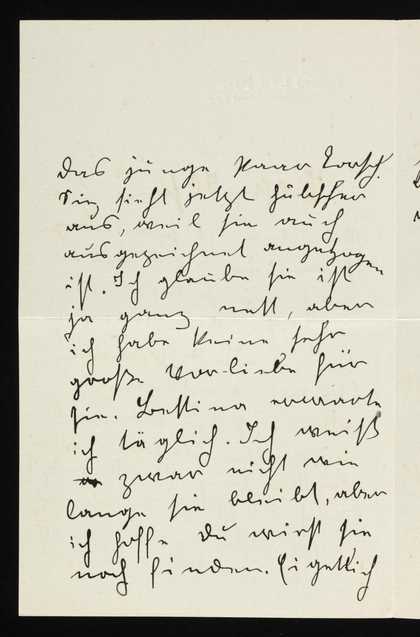 das junge Paar Zorsch.
Sie sieht jetzt hübscher
aus, weil sie auch
ausgezeichnet angezogen
ist. Ich glaube sie ist
ja ganz nett, aber
ich habe keine sehr
große Vorliebe für
sie. Bettina erwarte
ich täglich. Ich weiß
zwar nicht wie
lange sie bleibt, aber
ich hoffe Du wirst sie
noch finden. Eigentlich